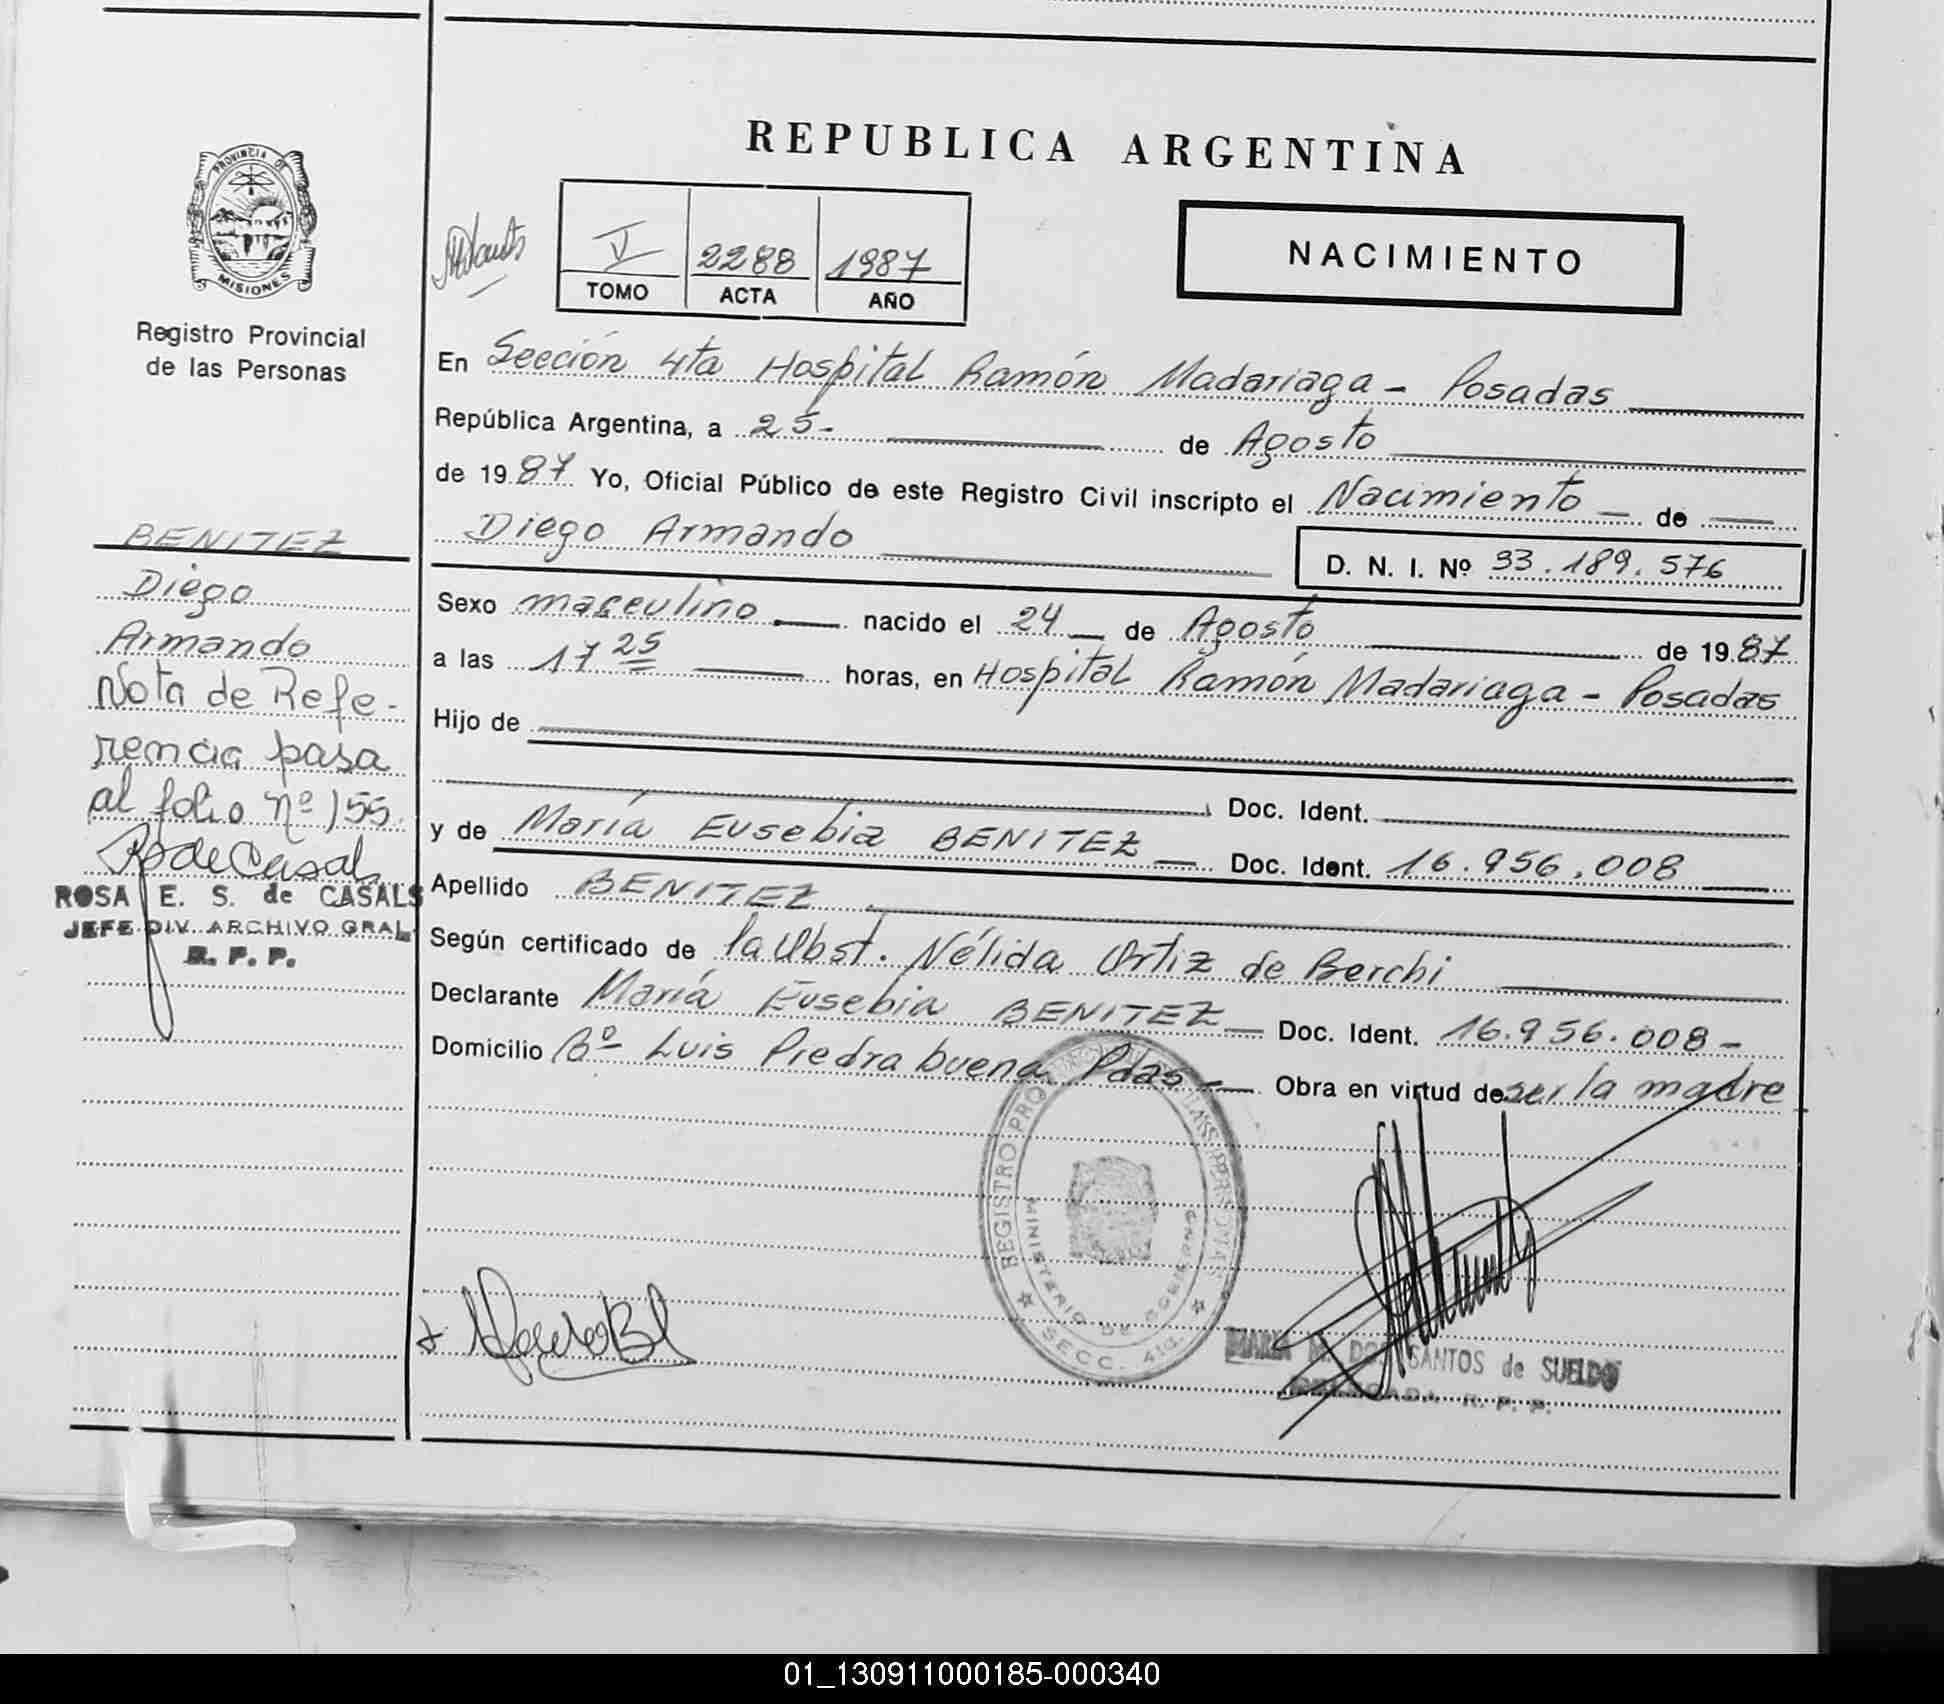 REPUBLICA ARGENTINA
PROVINCIA DE
MISIONES
Registro Provincial
de las Personas
V 2288 1987
TOMO ACTA AÑO
NACIMIENTO
En Sección 4ta Hospital Ramón Madariaga - Posadas
República Argentina, a 25- de Agosto
de 1987 Yo, Oficial Público de este Registro Civil inscripto el Nacimiento de
Diego Armando D. N. I. Nº 33.189.576
Sexo masculino nacido el 24 de Agosto de 1987
a las 17 25 horas, en Hospital Ramón Madariaga - Posadas
Hijo de
Doc. Ident.
y de María Eusebia BENITEZ Doc. Ident. 16.956.008
Apellido BENITEZ
Según certificado de la Obst. Nélida Ortiz de Berchi
Declarante María Eusebia BENITEZ Doc. Ident. 16.956.008-
Domicilio Bº Luis Piedra buena Pdas - Obra en virtud de ser la madre
BENITEZ
Diego
Armando
Nota de Refe-
rencia pasa
al folio nº 155.
ROSA E. S. de CASALS
JEFE DIV. ARCHIVO GRAL
R. P. P.
REGISTRO PROVINCIAL DE LAS PERSONAS
MINISTERIO DE GOBIERNO
SECC. 4ta.
MARIA M. DOS SANTOS de SUELDO
DELEGADA R. P. P.
01_130911000185-000340